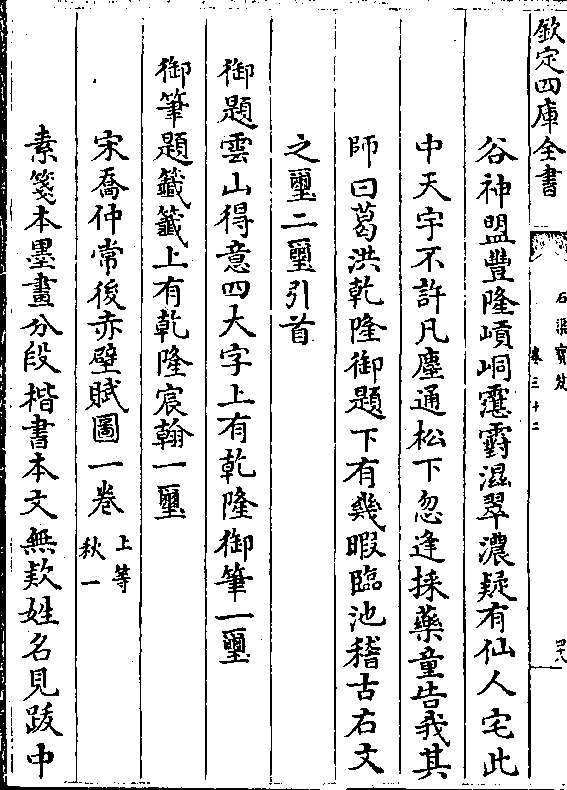 欽定四庫全書
石渠寶笈
卷三十二
四八
谷神盟豐隆崝峒靉霨滋翠濃疑有仙人宅此
中天宇不許凡塵通松下忽逢採藥童告我其
師曰葛洪乾隆御題下有幾暇臨池稽古右文
之璽二璽引首
御題雲山得意四大字上有乾隆御筆一璽
御筆題籤籤上有乾隆宸翰一璽
宋喬仲常後赤壁賦圖一卷 上等
秋一
素箋本墨畫分段楷書本文無款姓名見跋中